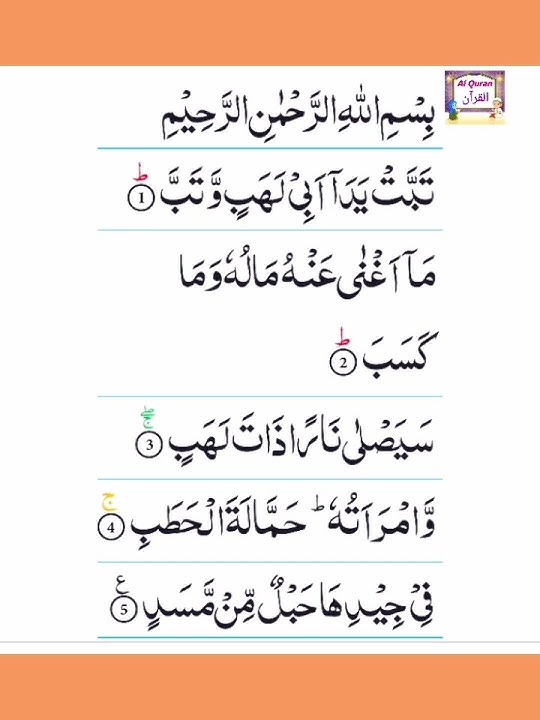 Al Quran
القرآن
بِسْمِ اللّٰهِ الرَّحْمٰنِ الرَّحِيْمِ
تَبَّتْ يَدَآ اَبِيْ لَهَبٍ وَّ تَبَّ ؕ 1
مَاۤ اَغْنٰى عَنْهُ مَالُهٗ وَ مَا
كَسَبَ ؕ 2
سَيَصْلٰى نَارًا ذَاتَ لَهَبٍ 3
وَّ امْرَاَتُهٗ ؕ حَمَّالَةَ الْحَطَبِ ۚ 4
فِيْ جِيْدِهَا حَبْلٌ مِّنْ مَّسَدٍ ع 5